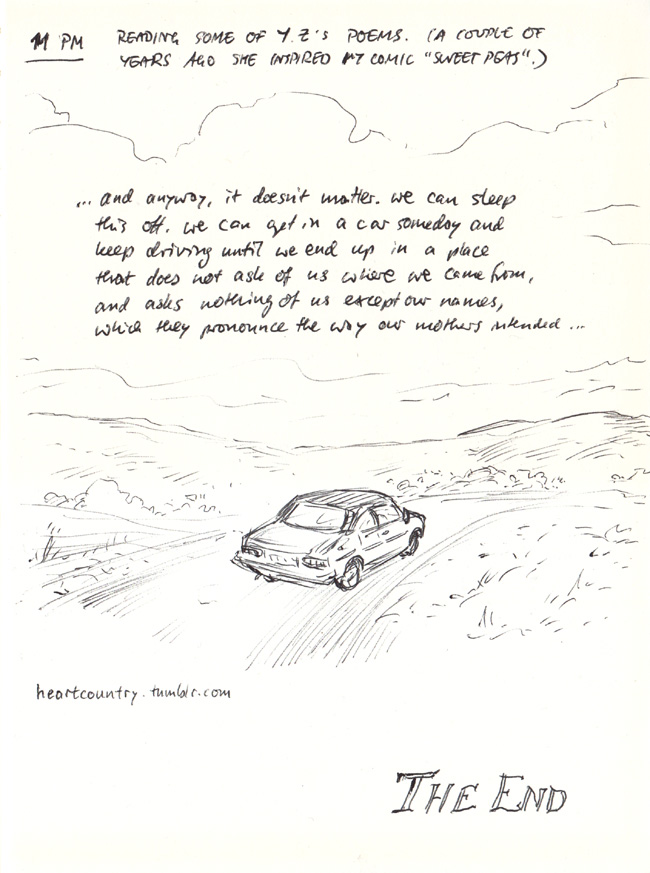 11 PM READING SOME OF Y.Z'S POEMS. (A COUPLE OF
YEARS AGO SHE INSPIRED MY COMIC "SWEET PEAS".)
... and anyway, it doesn't matter. we can sleep
this off. we can get in a car someday and
keep driving until we end up in a place
that does not ask of us where we came from,
and asks nothing of us except our names,
which they pronounce the way our mothers intended ...
heartcountry.tumblr.com
THE END